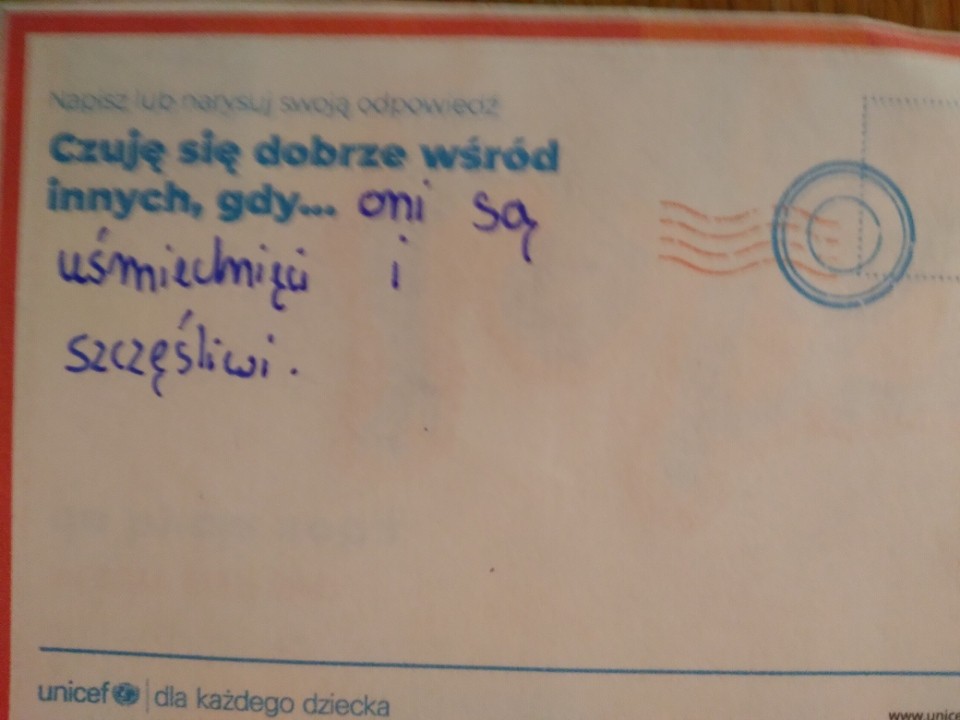 Napisz lub narysuj swoją odpowiedź
Czuję się dobrze wśród
innych, gdy... oni są
uśmiechnięci i
szczęśliwi.
unicef dla każdego dziecka
www.unice